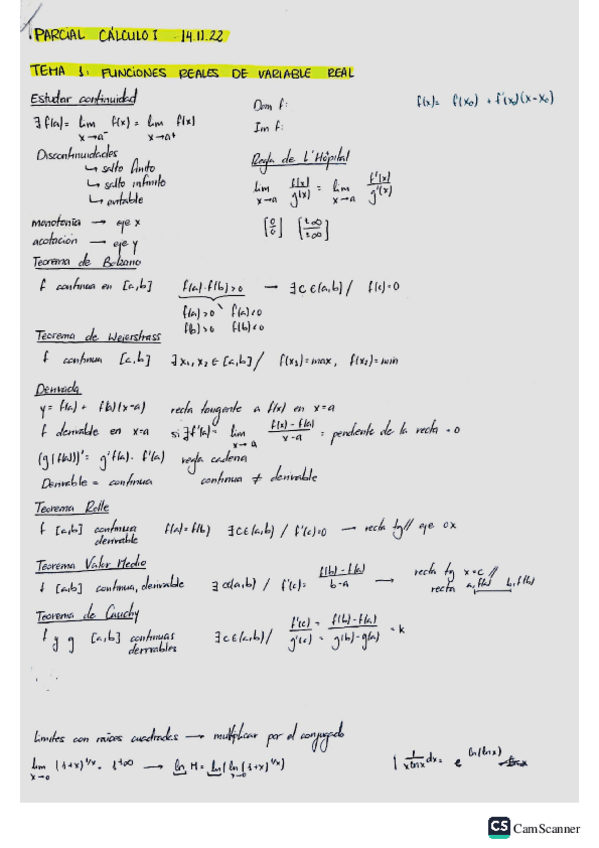 PARCIAL CÁLCULO I 14.11.22
TEMA 1: FUNCIONES REALES DE VARIABLE REAL
Estudiar continuidad
∃ f(a) = lim x→a⁻ f(x) = lim x→a⁺ f(x)
Discontinuidades
↳ salto finito
↳ salto infinito
↳ evitable
monotonía → eje x
acotación → eje y
Dom f:
Im f:
Regla de L'Hôpital
lim x→a f(x)/g(x) = lim x→a f'(x)/g'(x)
[0/0] [±∞/±∞]
f(x) = f(x₀) + f'(x₀)(x-x₀)
Teorema de Bolzano
f continua en [a,b] f(a)·f(b)>0 → ∃ c ∈(a,b) / f(c)=0
f(a)>0 f(a)<0
f(b)>0 f(b)<0
Teorema de Weierstrass
f continua [a,b] ∃ x₁, x₂ ∈ [a,b] / f(x₁)=max, f(x₂)=min
Derivada
y = f(a) + f(b)(x-a) recta tangente a f(x) en x=a
f derivable en x=a si ∃ f'(a) = lim x→a f(x)-f(a)/x-a = pendiente de la recta
(g(f(a)))' = g'f(a)· f'(a) regla cadena
Derivable = continua continua ≠ derivable
Teorema Rolle
f [a,b] continua derivable f(a)=f(b) ∃ c ∈(a,b) / f'(c)=0 → recta tg // eje OX
Teorema Valor Medio
f [a,b] continua, derivable ∃ c∈(a,b) / f'(c) = f(b)-f(a)/b-a → recta tg x=c // recta a,f(a) b,f(b)
Teorema de Cauchy
f y g [a,b] continuas derivables ∃ c ∈(a,b)/ f'(c)/g'(c) = f(b)-f(a)/g(b)-g(a) = k
Límites con raíces cuadradas → multiplicar por el conjugado
lim x→0 (1+x)^1/x = 1^±∞ → ln M = ln(1+x)^1/x)
∫ 1/x ln x dx = e^ln(ln x)
CS CamScanner